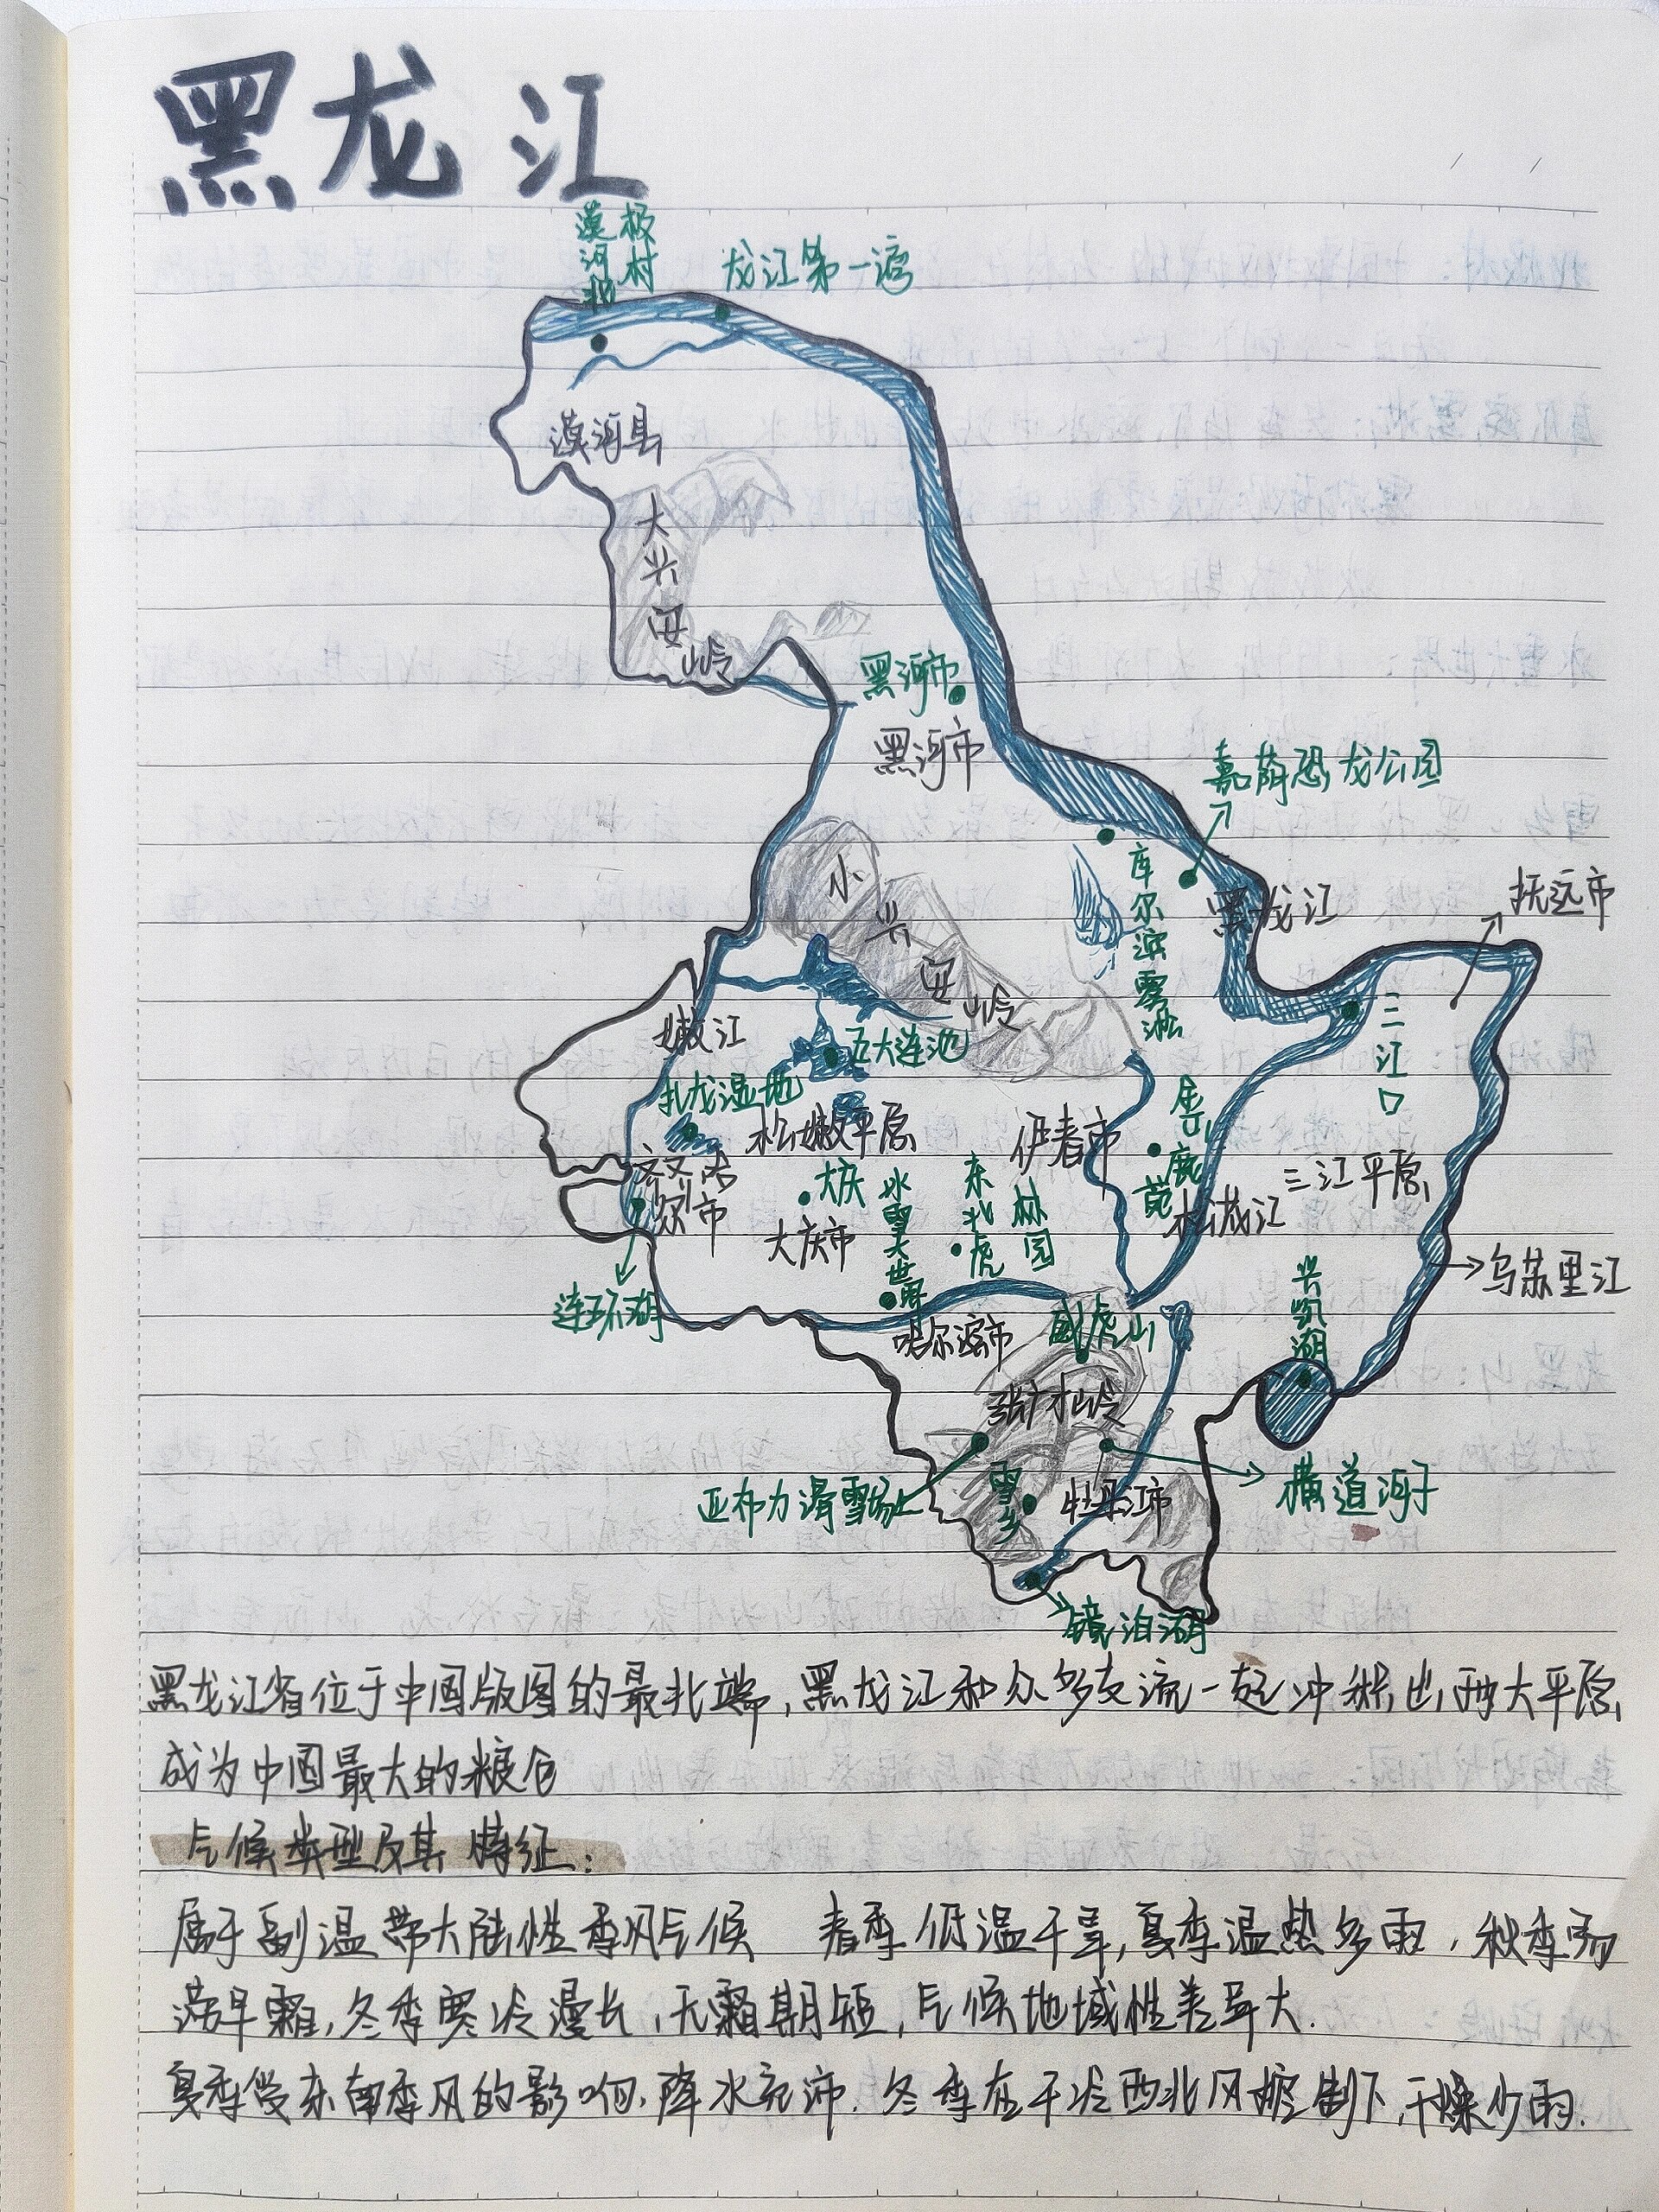 黑龙江
漠河北极村
龙江第一湾
漠河县
大兴安岭
黑河市
黑河市
嘉荫恐龙公园
小兴安岭
库尔滨雾凇
黑龙江
抚远市
嫩江
五大连池
三江口
扎龙湿地
松嫩平原
伊春市
金山鹿苑
齐齐哈尔市
大庆
冰雪大世界
东北虎林园
三江平原
松花江
大庆市
乌苏里江
连环湖
兴凯湖
哈尔滨市
威虎山
张广才岭
亚布力滑雪场
雪乡
牡丹江市
横道河子
镜泊湖
黑龙江省位于中国版图的最北端,黑龙江和众多支流一起冲积出两大平原,
成为中国最大的粮仓
气候类型及其特征:
属于温带大陆性季风气候 春季低温干旱,夏季温热多雨,秋季易
涝早霜,冬季寒冷漫长,无霜期短,气候地域性差异大.
夏季受东南季风的影响,降水充沛.冬季在干冷西北风控制下,干燥少雨.